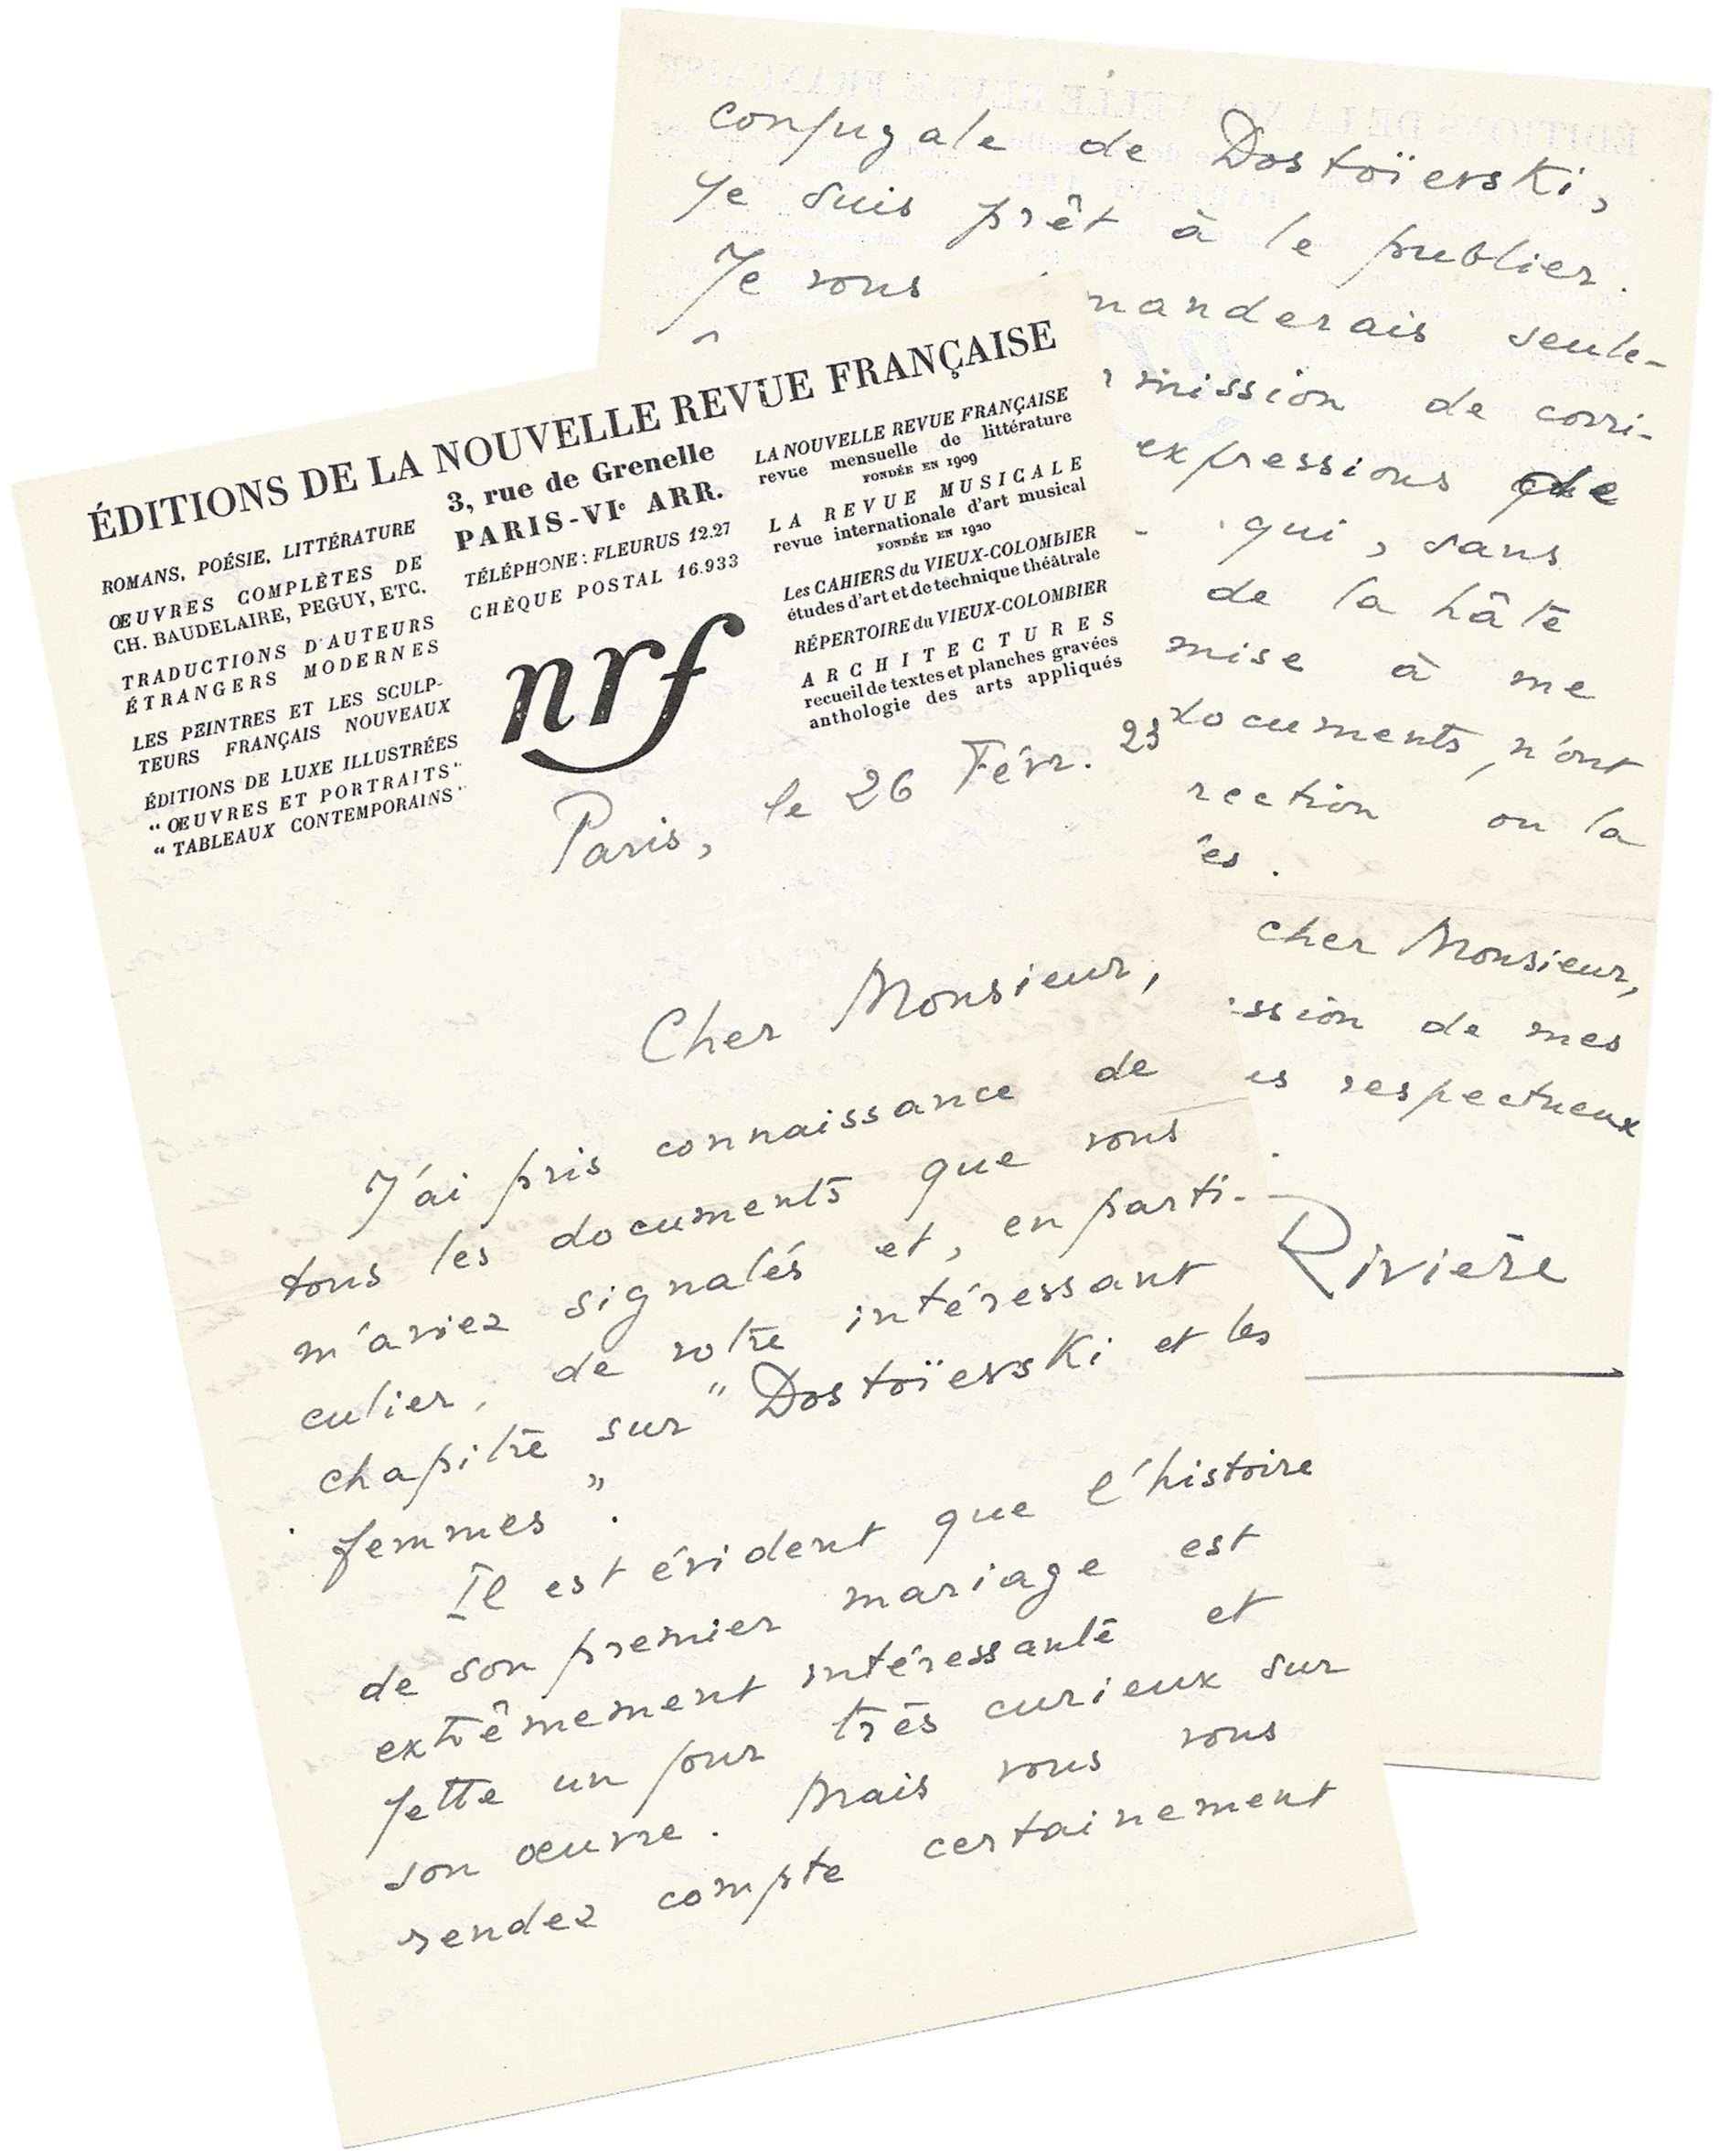 ÉDITIONS DE LA NOUVELLE REVUE FRANÇAISE
ROMANS, POÉSIE, LITTÉRATURE
ŒUVRES COMPLÈTES DE
CH. BAUDELAIRE, PEGUY, ETC.
TRADUCTIONS D'AUTEURS
ÉTRANGERS MODERNES
LES PEINTRES ET LES SCULP-
TEURS FRANÇAIS NOUVEAUX
ÉDITIONS DE LUXE ILLUSTRÉES
"ŒUVRES ET PORTRAITS"
"TABLEAUX CONTEMPORAINS"
3, rue de Grenelle
PARIS-VIe ARR.
TÉLÉPHONE : FLEURUS 12.27
CHÈQUE POSTAL 16.933
nrf
LA NOUVELLE REVUE FRANÇAISE
revue mensuelle de littérature
FONDÉE EN 1909
LA REVUE MUSICALE
revue internationale d'art musical
FONDÉE EN 1920
Les CAHIERS du VIEUX-COLOMBIER
études d'art et de technique théâtrale
RÉPERTOIRE du VIEUX-COLOMBIER
ARCHITECTURES
recueil de textes et planches gravées
anthologie des arts appliqués
Paris, le 26 Févr. 23
Cher Monsieur,
J'ai pris connaissance de
tous les documents que vous
m'aviez signalés et, en parti-
culier, de votre intéressant
chapitre sur "Dostoïevski et les
femmes".
Il est évident que l'histoire
de son premier mariage est
extrêmement intéressante et
jette un jour très curieux sur
son œuvre. Mais vous vous
rendez compte certainement
conjugale de Dostoïevski,
je suis prêt à le publier.
Je vous manderais seule-
mission de corri-
expressions
qui, sans
de la hâte
mise à me
documents, n'ont
rection ou la
és.
cher Monsieur,
ssion de mes
es respectueux
Rivière